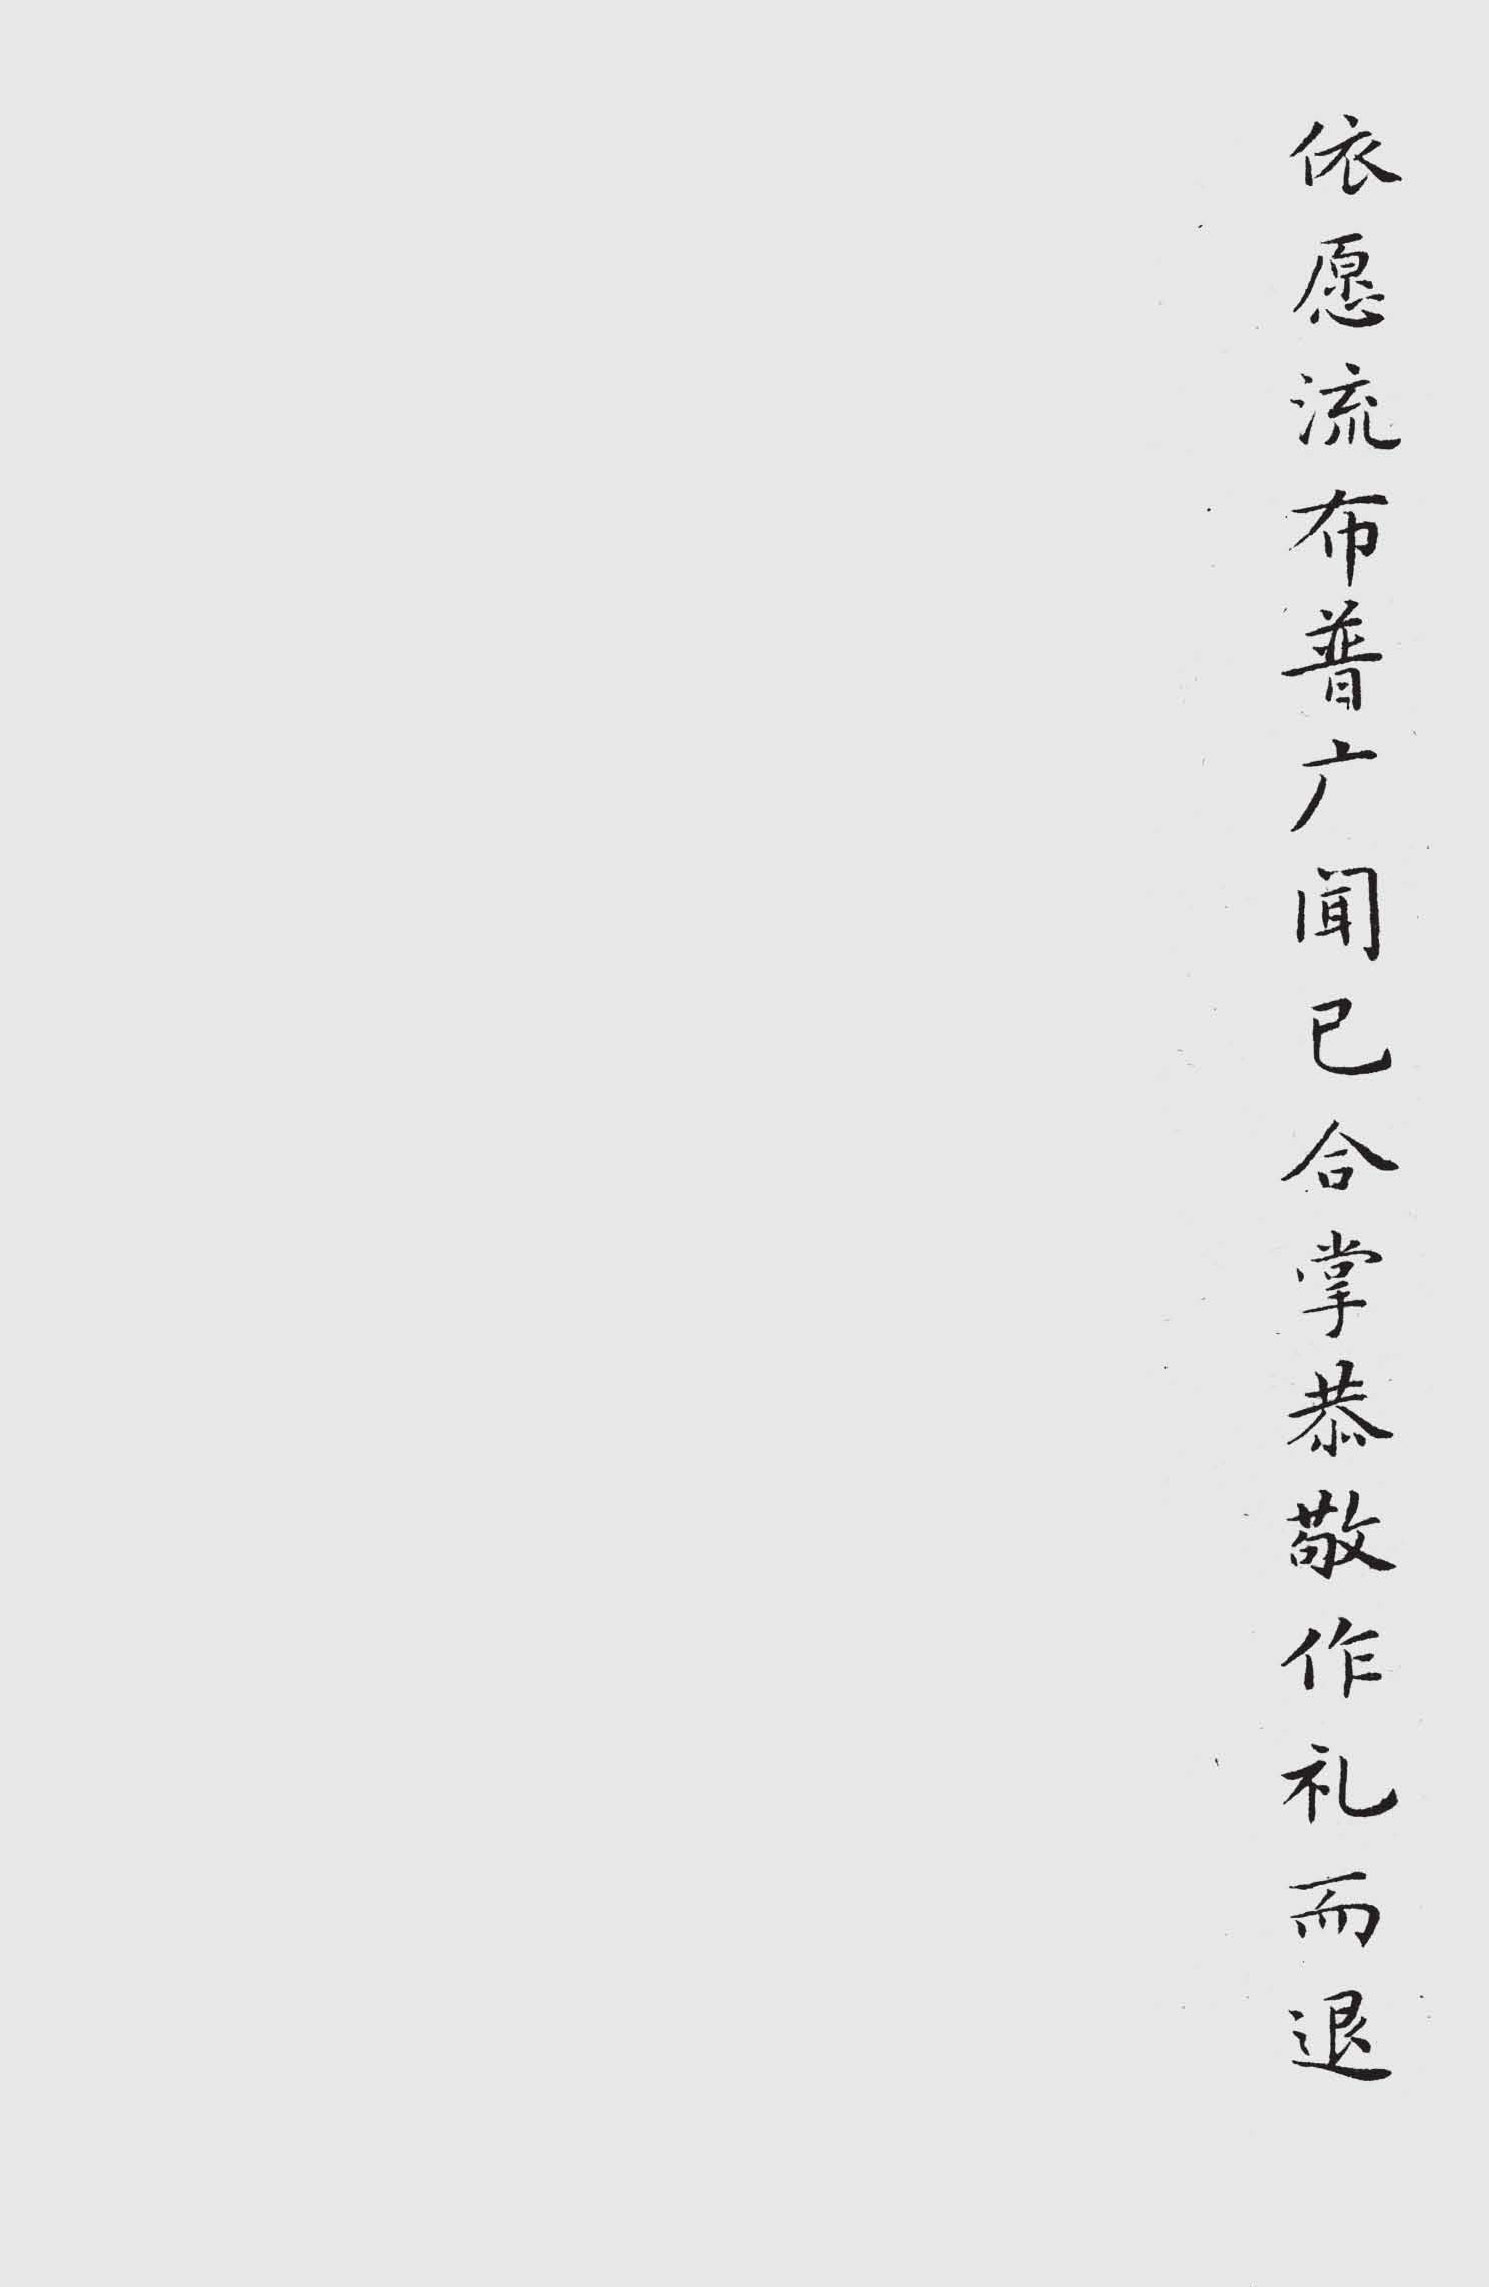 依愿流布普广闻已合掌恭敬作礼而退